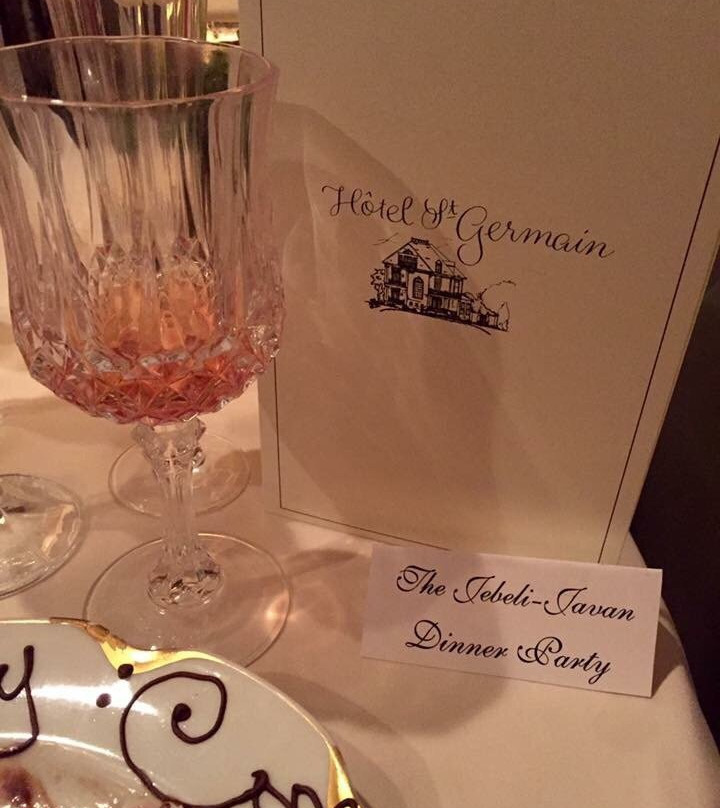 Hôtel St Germain
The Jebeli-Javan
Dinner Party